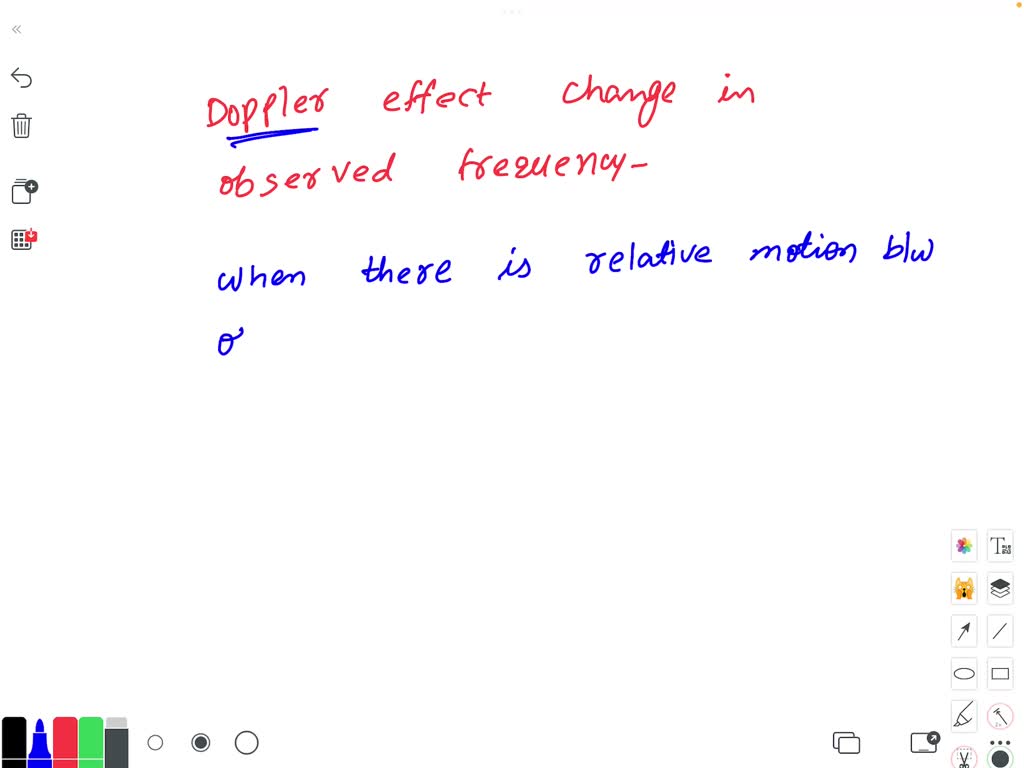 Doppler effect change in
observed frequency-
when there is relative motion b/w
o